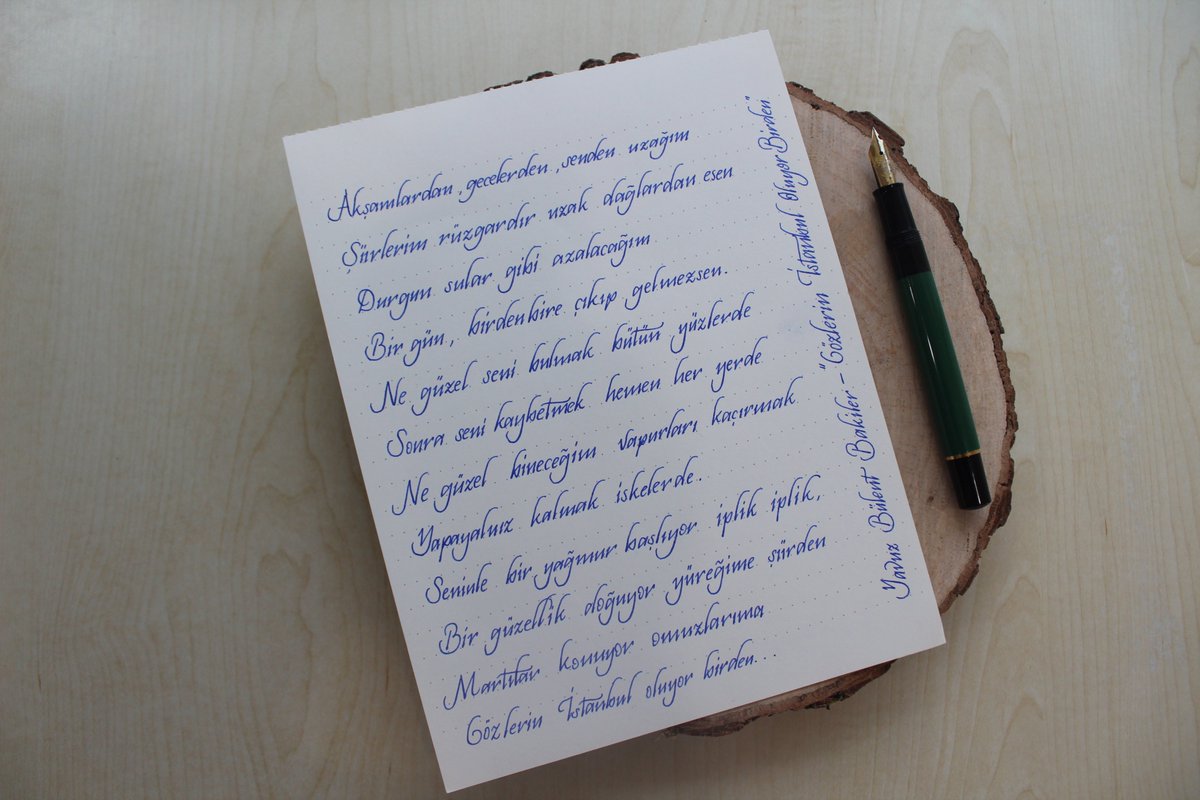 Akşamlardan, gecelerden, senden uzağım
Şiirlerim rüzgardır uzak dağlardan esen
Durgun sular gibi azalacağım
Bir gün, birdenbire çıkıp gelmezsen.
Ne güzel seni bulmak bütün yüzlerde
Sonra seni kaybetmek hemen her yerde
Ne güzel bineceğim vapurları kaçırmak
Yapayalnız kalmak iskelerde.
Seninle bir yağmur başlıyor iplik iplik,
Bir güzellik doğuyor yüreğime şiirden
Martılar konuyor omuzlarıma
Gözlerin İstanbul oluyor birden...
Yavuz Bülent Bakiler - "Gözlerin İstanbul Oluyor Birden"